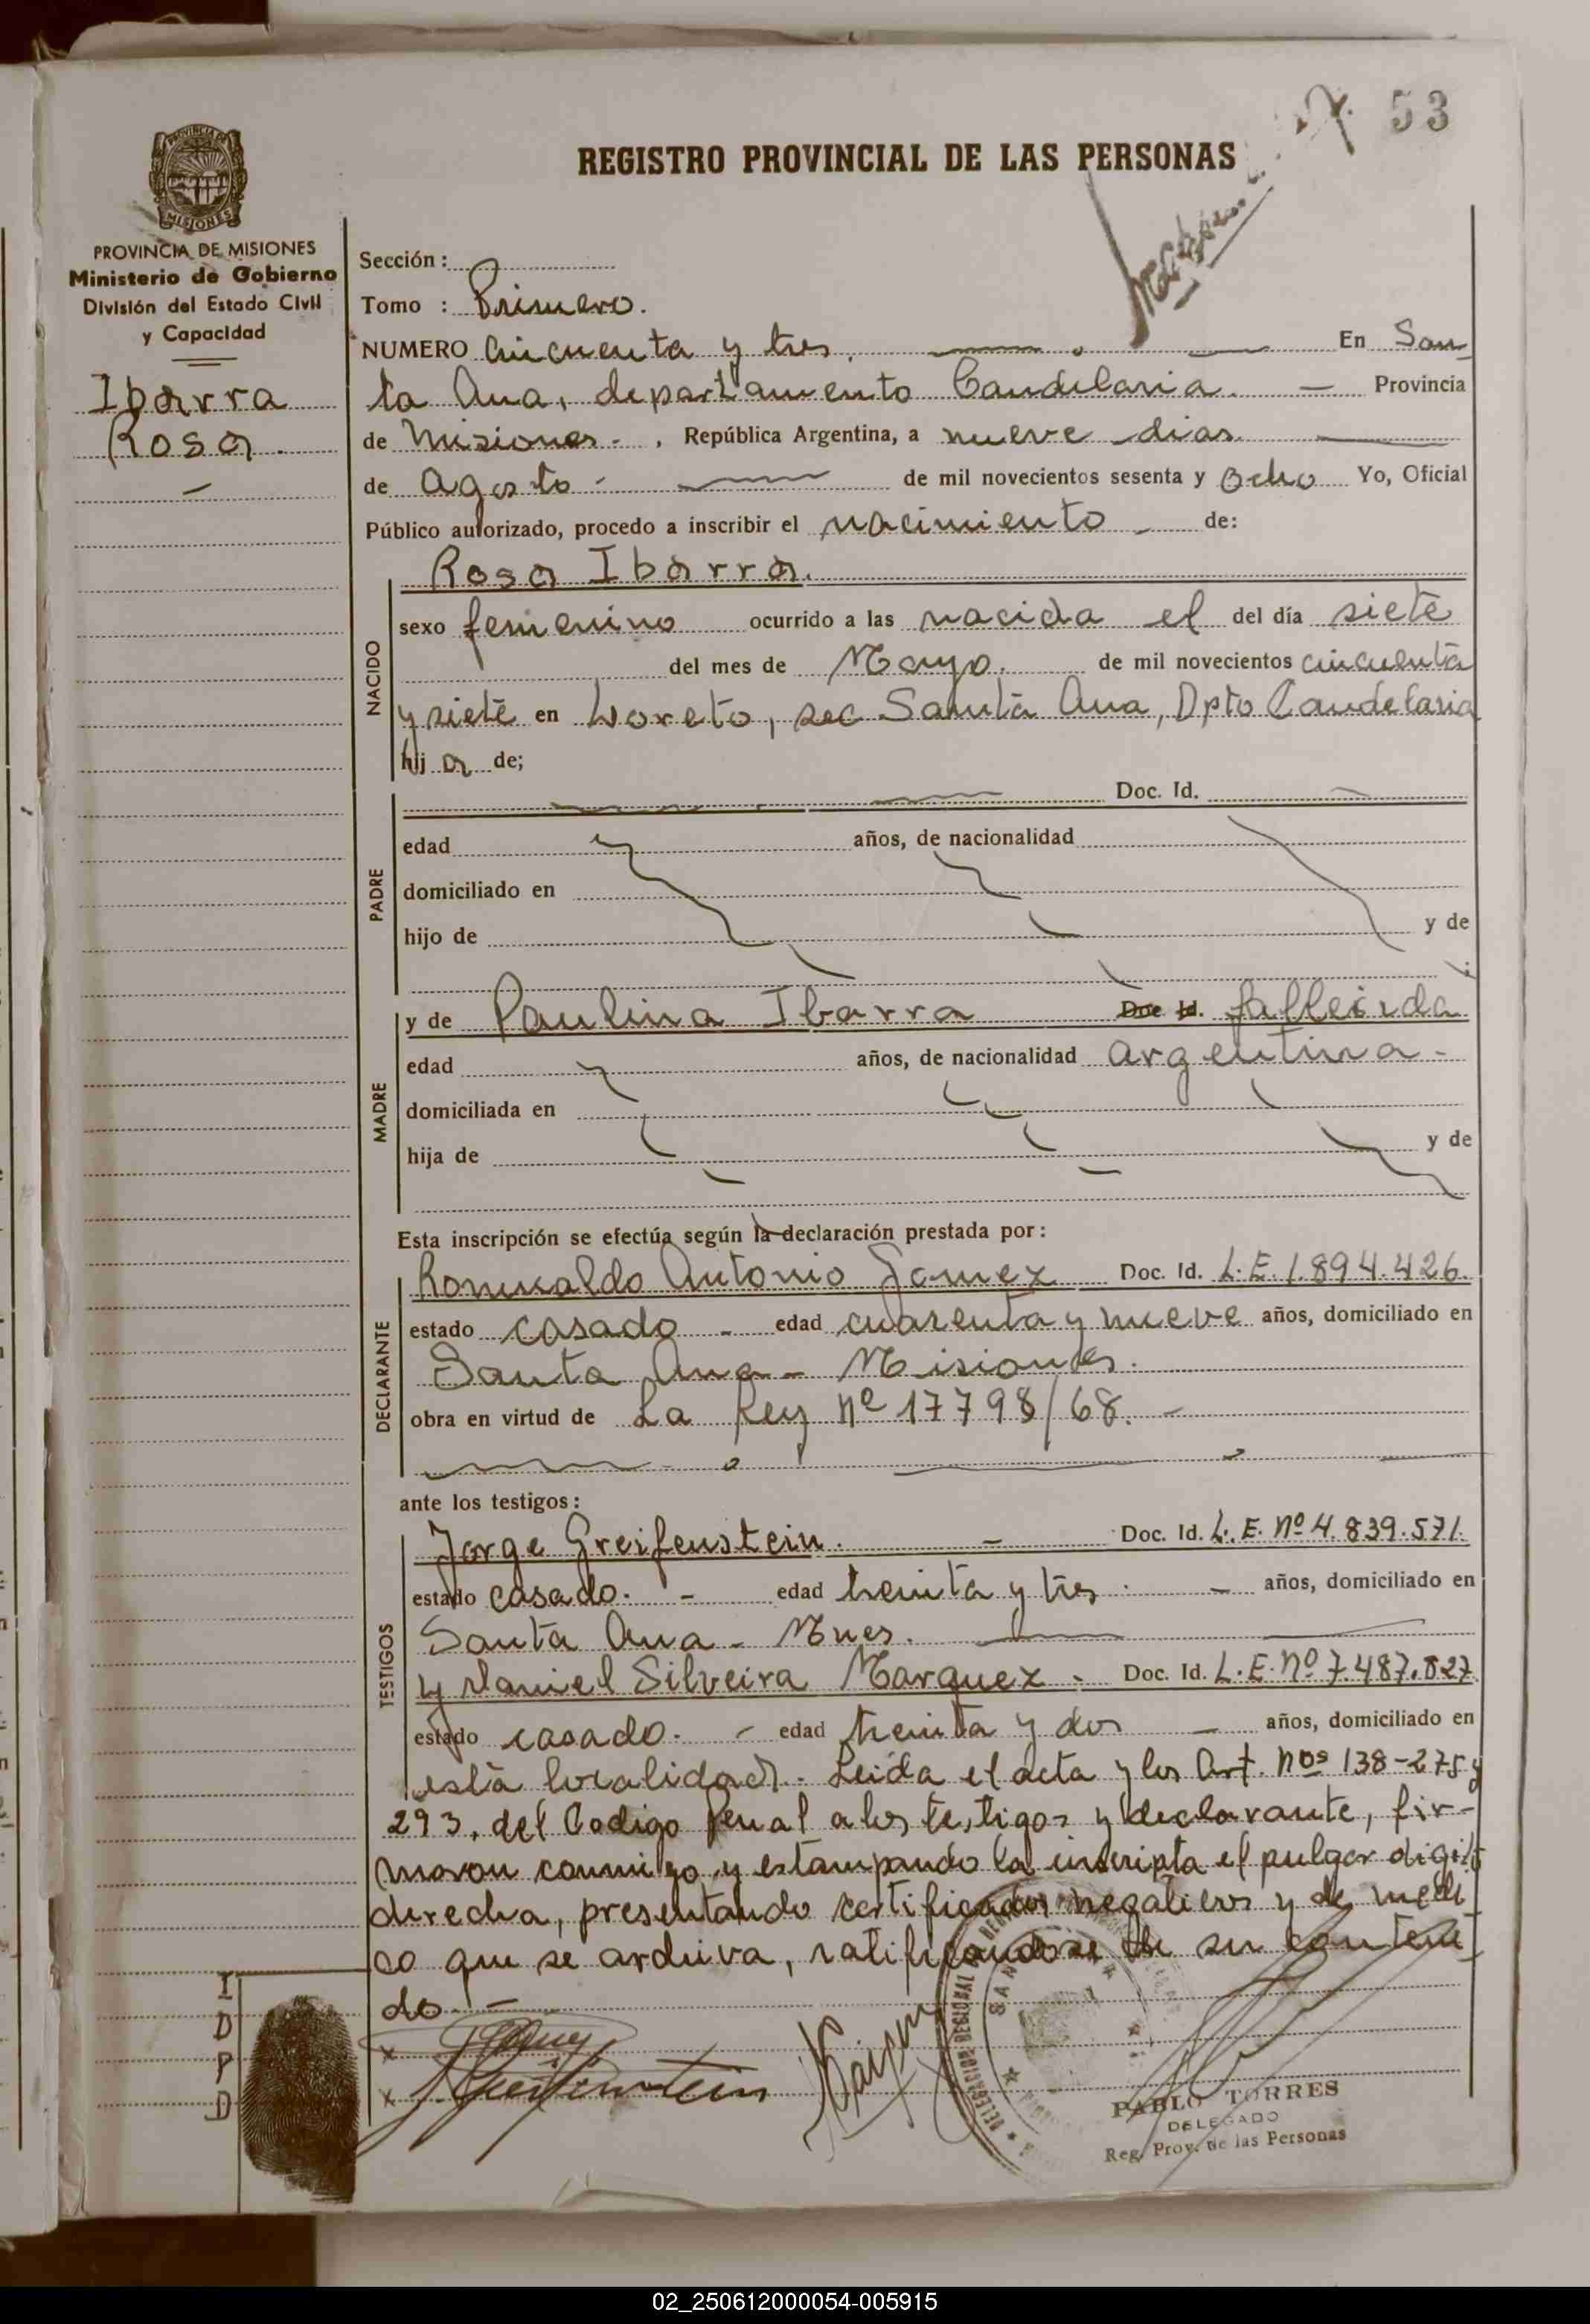 53
REGISTRO PROVINCIAL DE LAS PERSONAS
PROVINCIA DE MISIONES
Ministerio de Gobierno
División del Estado Civil
y Capacidad
Ibarra
Rosa.
Sección:
Tomo : Primero.
NUMERO Cincuenta y tres. En San
ta Ana, departamento Candelaria. Provincia
de Misiones-. República Argentina, a nueve dias.
de Agosto- de mil novecientos sesenta y Ocho Yo, Oficial
Público autorizado, procedo a inscribir el nacimiento de:
Rosa Ibarra.
NACIDO
sexo femenino ocurrido a las nacida el del día siete
del mes de Mayo. de mil novecientos cincuenta
y siete en Loreto, sec Santa Ana, Dpto Candelaria
hij a de;
PADRE
Doc. Id.
edad años, de nacionalidad
domiciliado en
hijo de y de
;
MADRE
y de Paulina Ibarra Doc Id. falleida
edad años, de nacionalidad argentina-
domiciliada en
hija de y de
Esta inscripción se efectúa según la declaración prestada por:
DECLARANTE
Romualdo Antonio Gomez Doc. Id. L.E. 1.894.426.
estado casado - edad cuarenta y nueve años, domiciliado en
Santa Ana - Misiones.
obra en virtud de La Ley nº 17798/68. -
ante los testigos:
TESTIGOS
Jorge Greifenstein. - Doc. Id. L. E. Nº 4.839.571.
estado casado. - edad treinta y tres. - años, domiciliado en
Santa Ana - Mnes.
y Daniel Silveira Marquez - Doc. Id. L.E. nº 7.487.827
estado casado. - edad treinta y dos - años, domiciliado en
esta localidad. Leida el acta y los Art. Nos 138-275 y
293, del Codigo Penal a los testigos y declarante, fir-
maron conmigo y estampando la inscripta el pulgar digito
derecha, presentando certificados negativos y de medi
co que se archiva, ratificandose de su conteni
do. -
I
D
P
D
x
x Greifenstein
DELEGACION REGIONAL
PABLO TORRES
DELEGADO
Reg. Prov. de las Personas
02_250612000054-005915